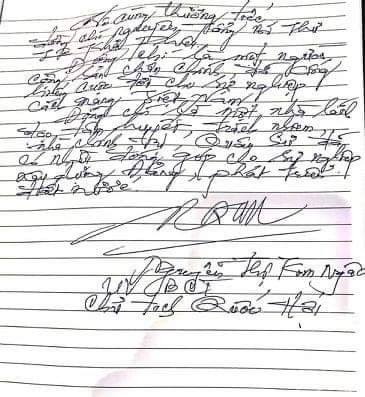 Vô cùng thương tiếc
đồng chí nguyên Tổng Bí Thư
Lê Khả Phiêu
Đồng chí là một người
cộng sản chân chính, đã cống
hiến cuộc đời cho sự nghiệp
cách mạng Việt Nam.
Đồng chí là một nhà lãnh
đạo tâm huyết, trách nhiệm
nhà chính trị, Quân sự đã
có nhiều đóng góp cho sự nghiệp
xây dựng Đảng, phát triển
đất nước.
Nguyễn Thị Kim Ngân
UV BCT
Chủ tịch Quốc Hội